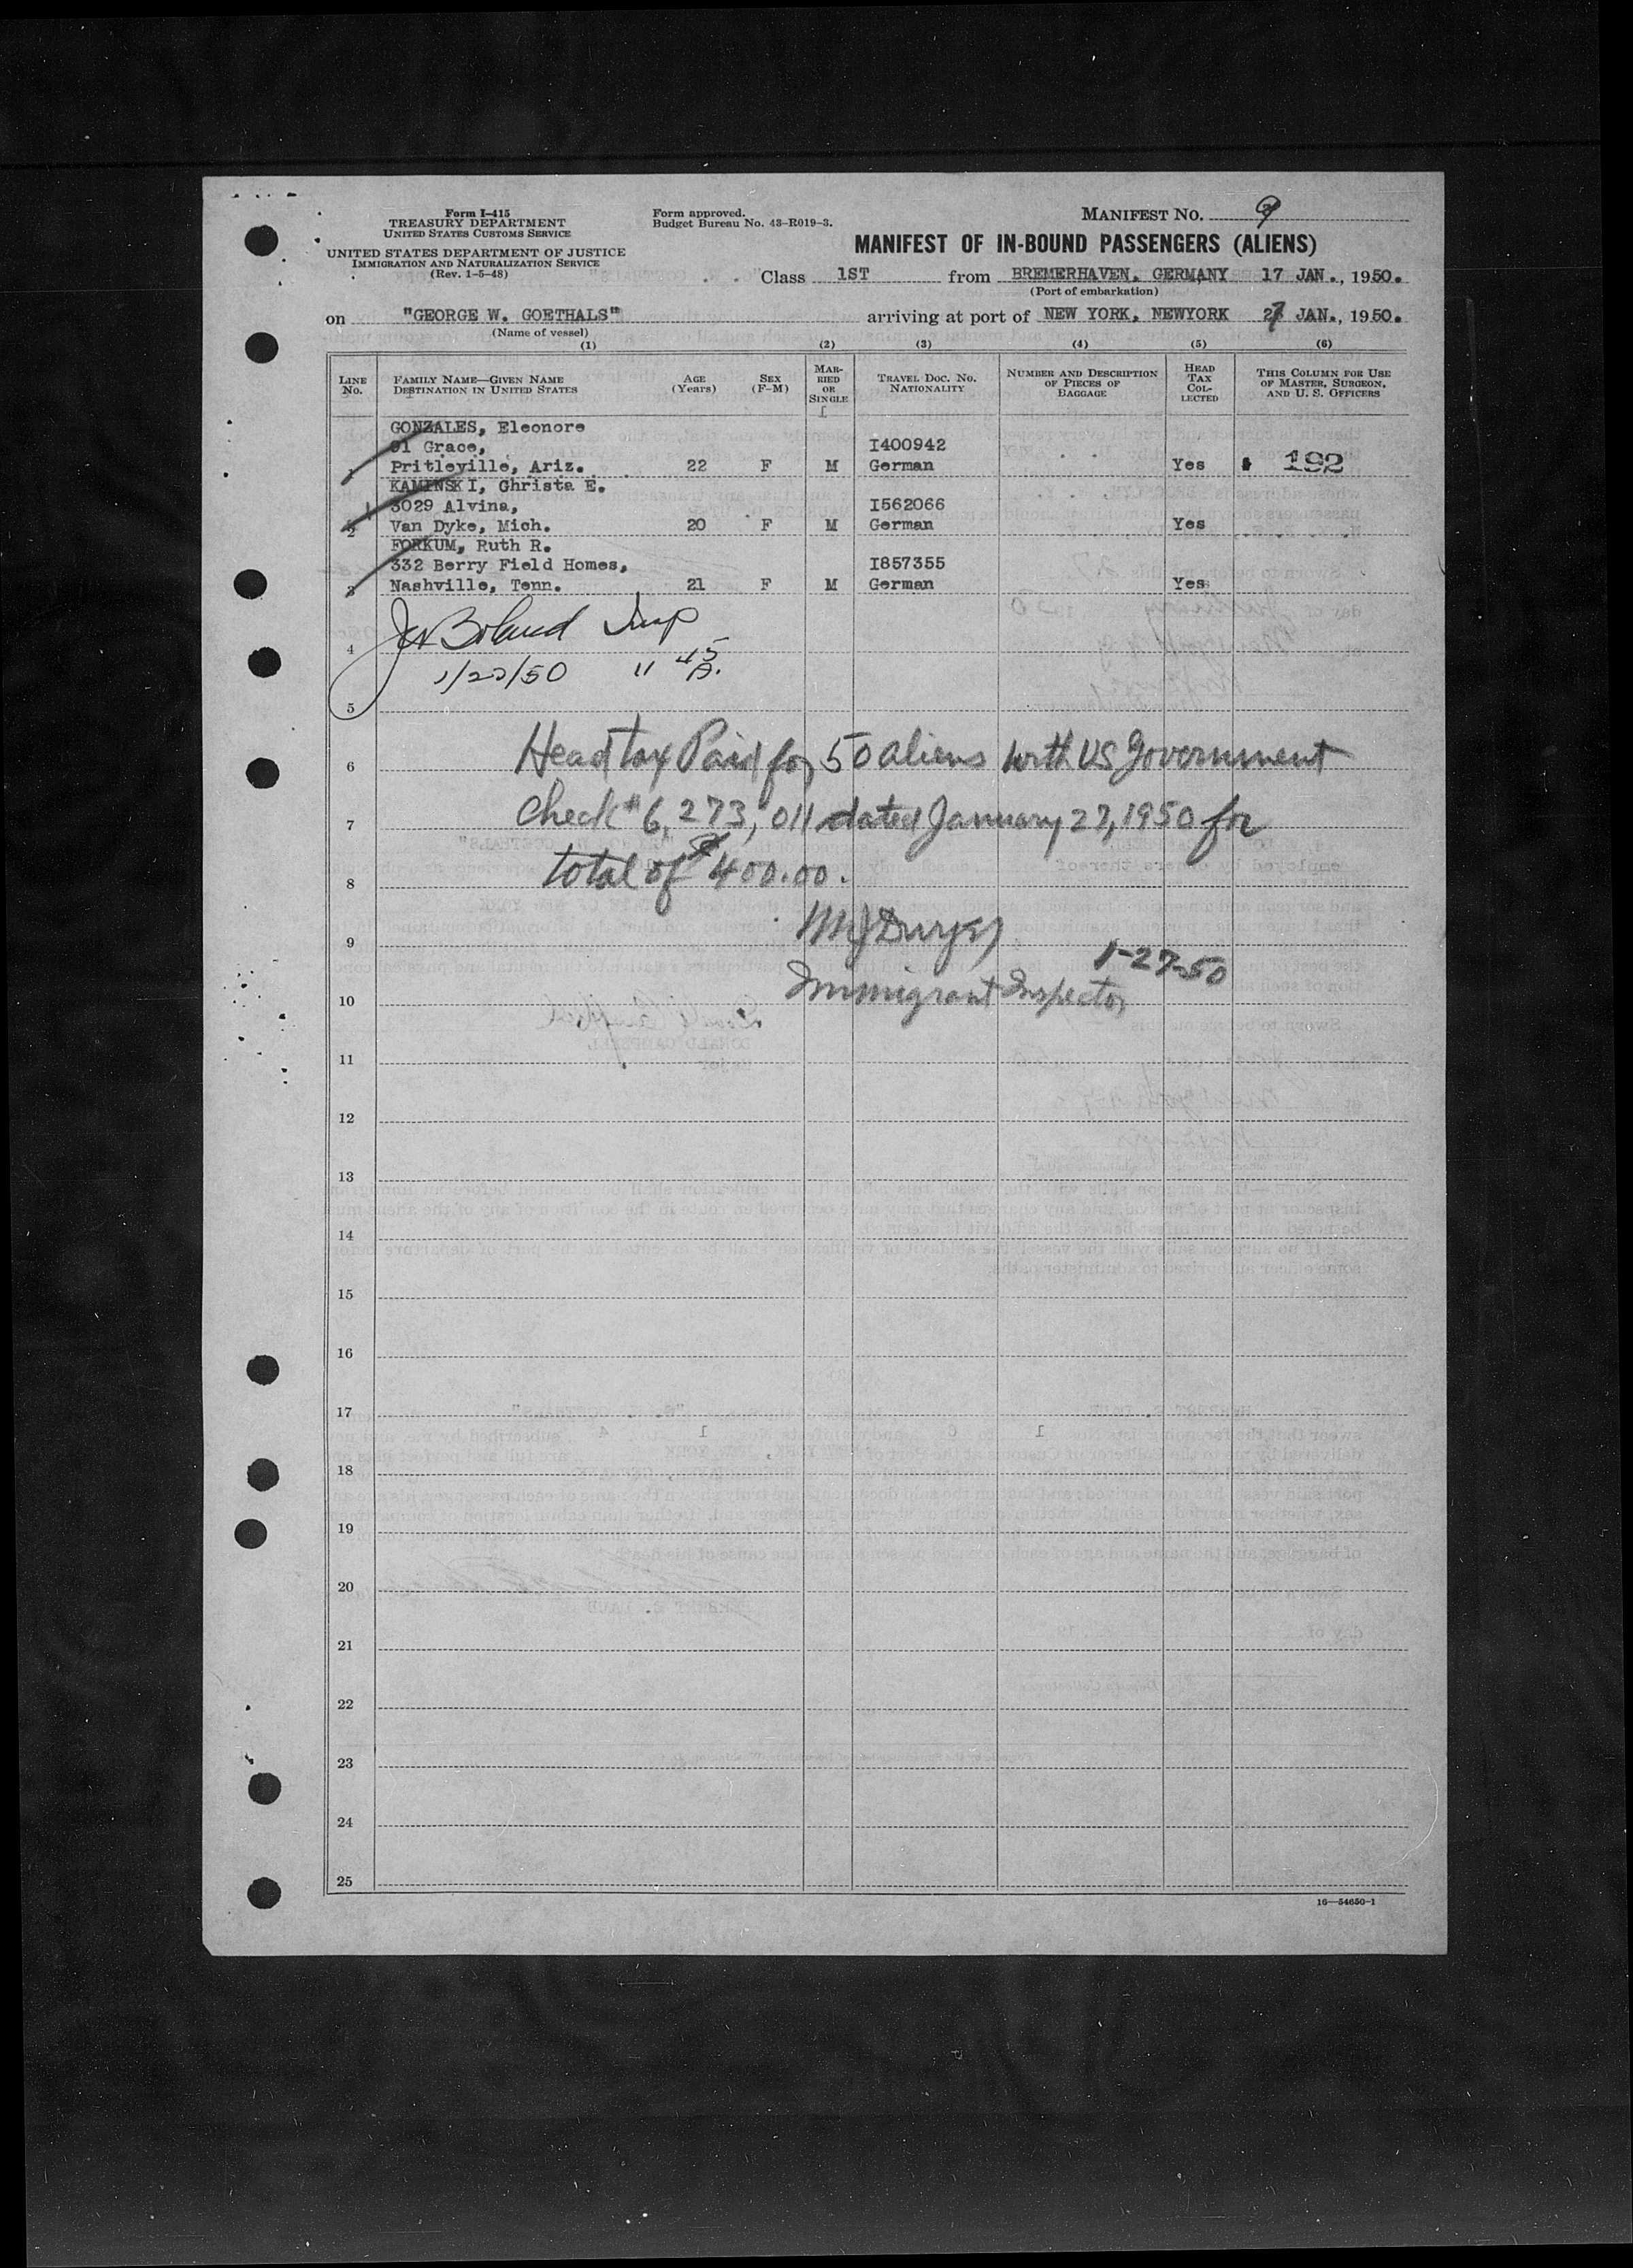 Form I-415
TREASURY DEPARTMENT
UNITED STATES CUSTOMS SERVICE
UNITED STATES DEPARTMENT OF JUSTICE
IMMIGRATION AND NATURALIZATION SERVICE
(Rev. 1-5-48)
Form approved.
Budget Bureau No. 43-R019-3.
MANIFEST NO. 9
MANIFEST OF IN-BOUND PASSENGERS (ALIENS)
Class 1ST from BREMERHAVEN, GERMANY 17 JAN., 1950.
(Port of embarkation)
on "GEORGE W. GOETHALS" arriving at port of NEW YORK, NEWYORK 27 JAN., 1950.
(Name of vessel)
(1) (2) (3) (4) (5) (6)
LINE No. FAMILY NAME—GIVEN NAME DESTINATION IN UNITED STATES AGE (Years) SEX (F-M) MARRIED OR SINGLE TRAVEL DOC. NO. NATIONALITY NUMBER AND DESCRIPTION OF PIECES OF BAGGAGE HEAD TAX COLLECTED THIS COLUMN FOR USE OF MASTER, SURGEON, AND U. S. OFFICERS
GONZALES, Eleonore
91 Grace, I400942
1 Pritleville, Ariz. 22 F M German Yes 192
KAMINSKI, Christa E.
3029 Alvina, I562066
2 Van Dyke, Mich. 20 F M German Yes
FORKUM, Ruth R.
332 Berry Field Homes, I857355
3 Nashville, Tenn. 21 F M German Yes
Boland Insp
4
1/27/50 11 45 A.
5
6 Head tax Paid for 50 aliens with US Government
7 Check # 6,273,011 dated January 27, 1950 for
8 total of $400.00.
9 MJ Dwyer
1-27-50
10 Immigrant Inspector
11
12
13
14
15
16
17
18
19
20
21
22
23
24
25
16—54650-1